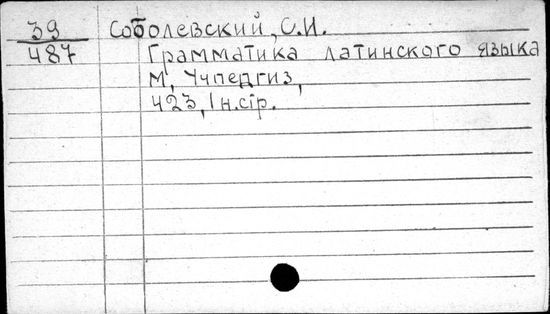 39 Соболевский, С.И.
487 Грамматика латинского языка
М, Учпедгиз,
423, 1 н.стр.